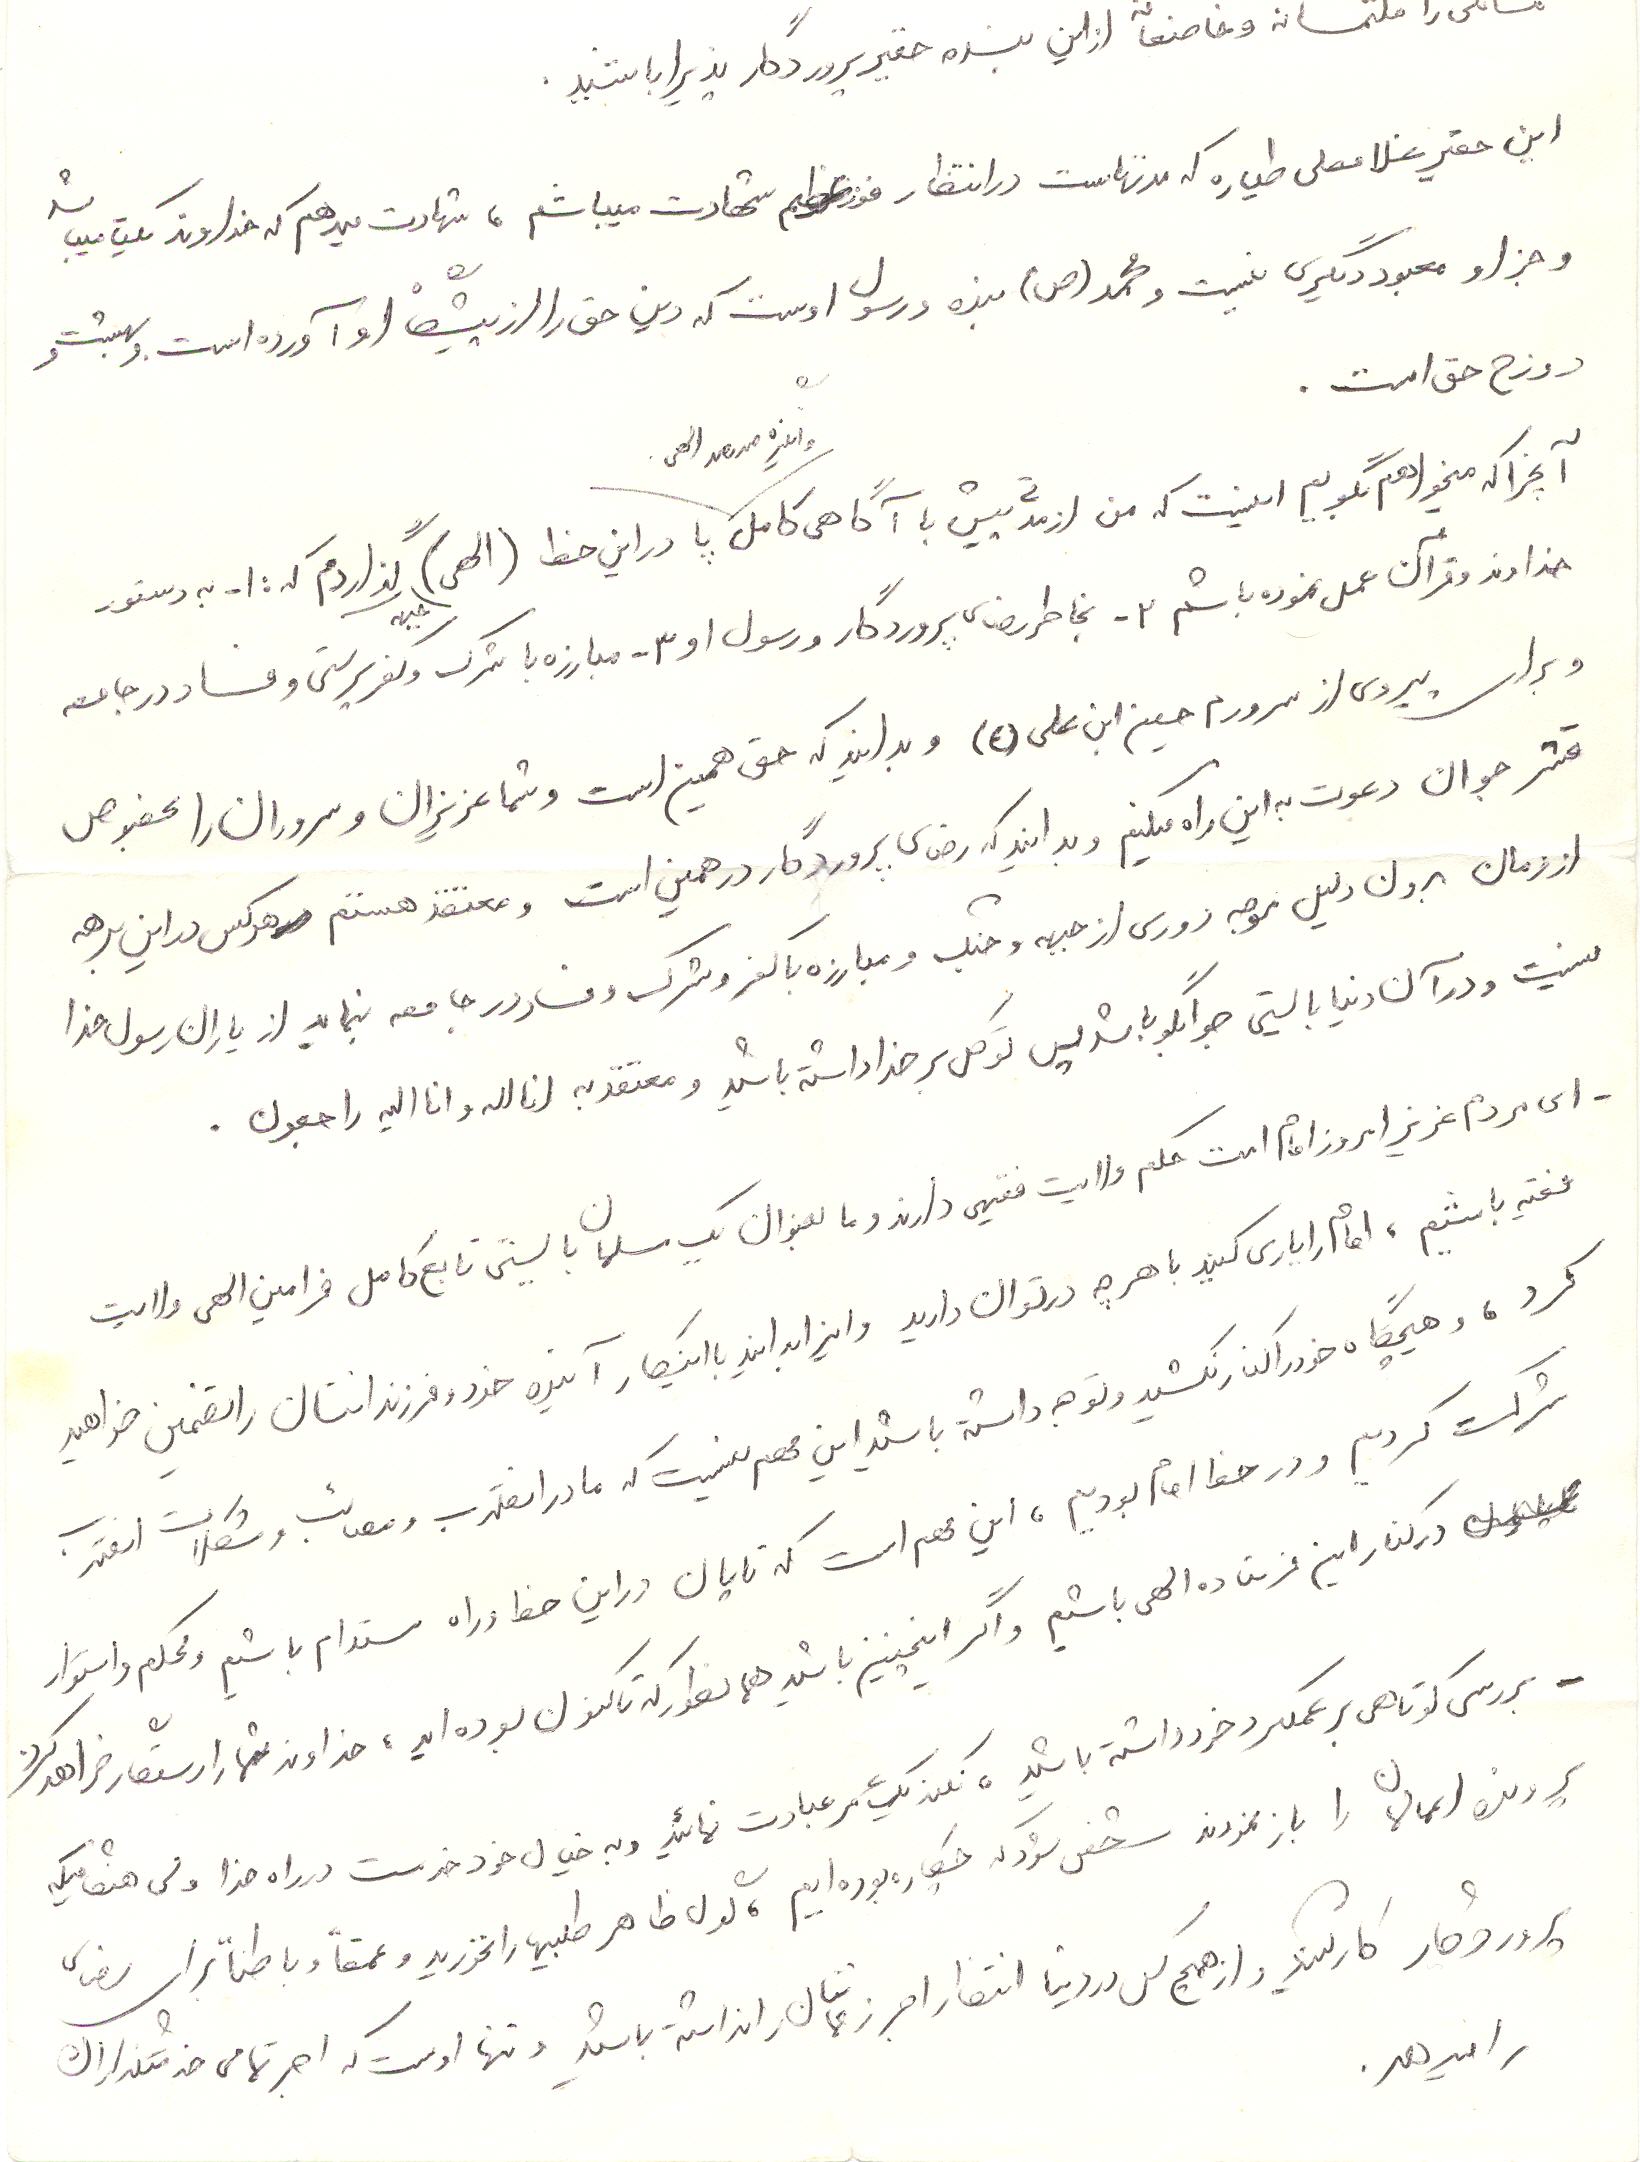 مسائلی را ملتمسانه و خاضعانه از این بنده حقیر پروردگار پذیرا باشید .
این حقیر غلامعلی طیاره که مدتهاست در انتظار فوز عظیم شهادت میباشم ، شهادت میدهم که خداوند یکیست میباشد
و جز او معبود دیگری نیست و محمد (ص) بنده و رسول اوست که دین حق را از پیش او آورده است . و بهشت و
دوزخ حق است .
و انگیزه صد در صد الهی .
آنچرا که میخواهم بگویم اینست که من از مدتی پیش با آگاهی کامل پا در این خط (الهی) گذاردم که : ۱- به دستور
جبهه
خداوند و قرآن عمل نموده باشم ۲- بخاطر رضای پروردگار و رسول او ۳- مبارزه با شرک و کفر پرستی و فساد در جامعه
و برای پیروی از سرورم حسین ابن علی (ع) و بدانید که حق همین است و شما عزیزان و سروران را بخصوص
قشر جوان دعوت به این راه میکنم و بدانید که رضای پروردگار در همین است و معتقد هستم هرکس در این برهه
از زمان بدون دلیل موجه دوری از جبهه و جنگ و مبارزه با کفر و شرک و فساد در جامعه بنماید از یاران رسول خدا
نیست و در آن دنیا بایستی جوابگو باشد پس توکل بر خدا داشته باشید و معتقد به انا لله و انا الیه راجعون .
- ای مردم عزیز امروز امام امت حکم ولایت فقیهی دارند و ما بعنوان یک مسلمان بایستی تابع کامل فرامین الهی ولایت
فقیه باشیم ، امام را یاری کنید با هر چه در توان دارید و اینرا بدانید با اینکار آینده خود و فرزندانتان را تضمین خواهید
کرد ، و هیچگاه خود را کنار نکشید و توجه داشته باشید این مهم نیست که ما در انقلاب و مصائب و مشکلات انقلاب
شرکت کردیم و در خط امام بودیم ، این مهم است که تا پایان در این خط و راه مستدام باشیم و محکم و استوار
در کنار این فرستاده الهی باشیم و اگر اینچنین باشید همانطور که تاکنون بوده اید ، خداوند شما را رستگار خواهد کرد .
- بررسی کوتاهی بر عملکرد خود داشته باشید ، نکند یک عمر عبادت نمائید و به خیال خود خدمت در راه خدا ولی هنگامیکه
پرونده اعمالمان را باز نمودند مشخص شود که چکاره بوده ایم ، گول ظاهر طلبیها را نخورید و عمقاً و باطناً برای رضای
پروردگار کار کنید و از هیچ کس در دنیا انتظار اجر زحماتتان را نداشته باشید و تنها اوست که اجر تمامی خدمتگذاران
را میدهد .